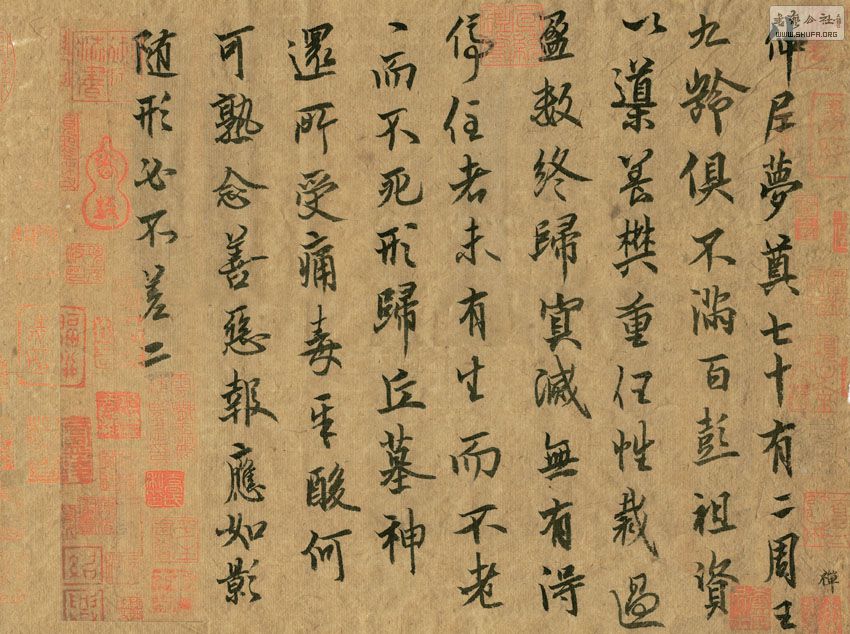 仲尼夢奠七十有二周王
九齡俱不滿百彭祖資
以導養樊重任性裁過
盈數終歸冥滅無有得
停住者未有生而不老
丶而不死形歸丘墓神
還所受痛毒辛酸何
可熟念善惡報應如影
随形必不差二
禪
書法公社
WWW.SHUFA.ORG